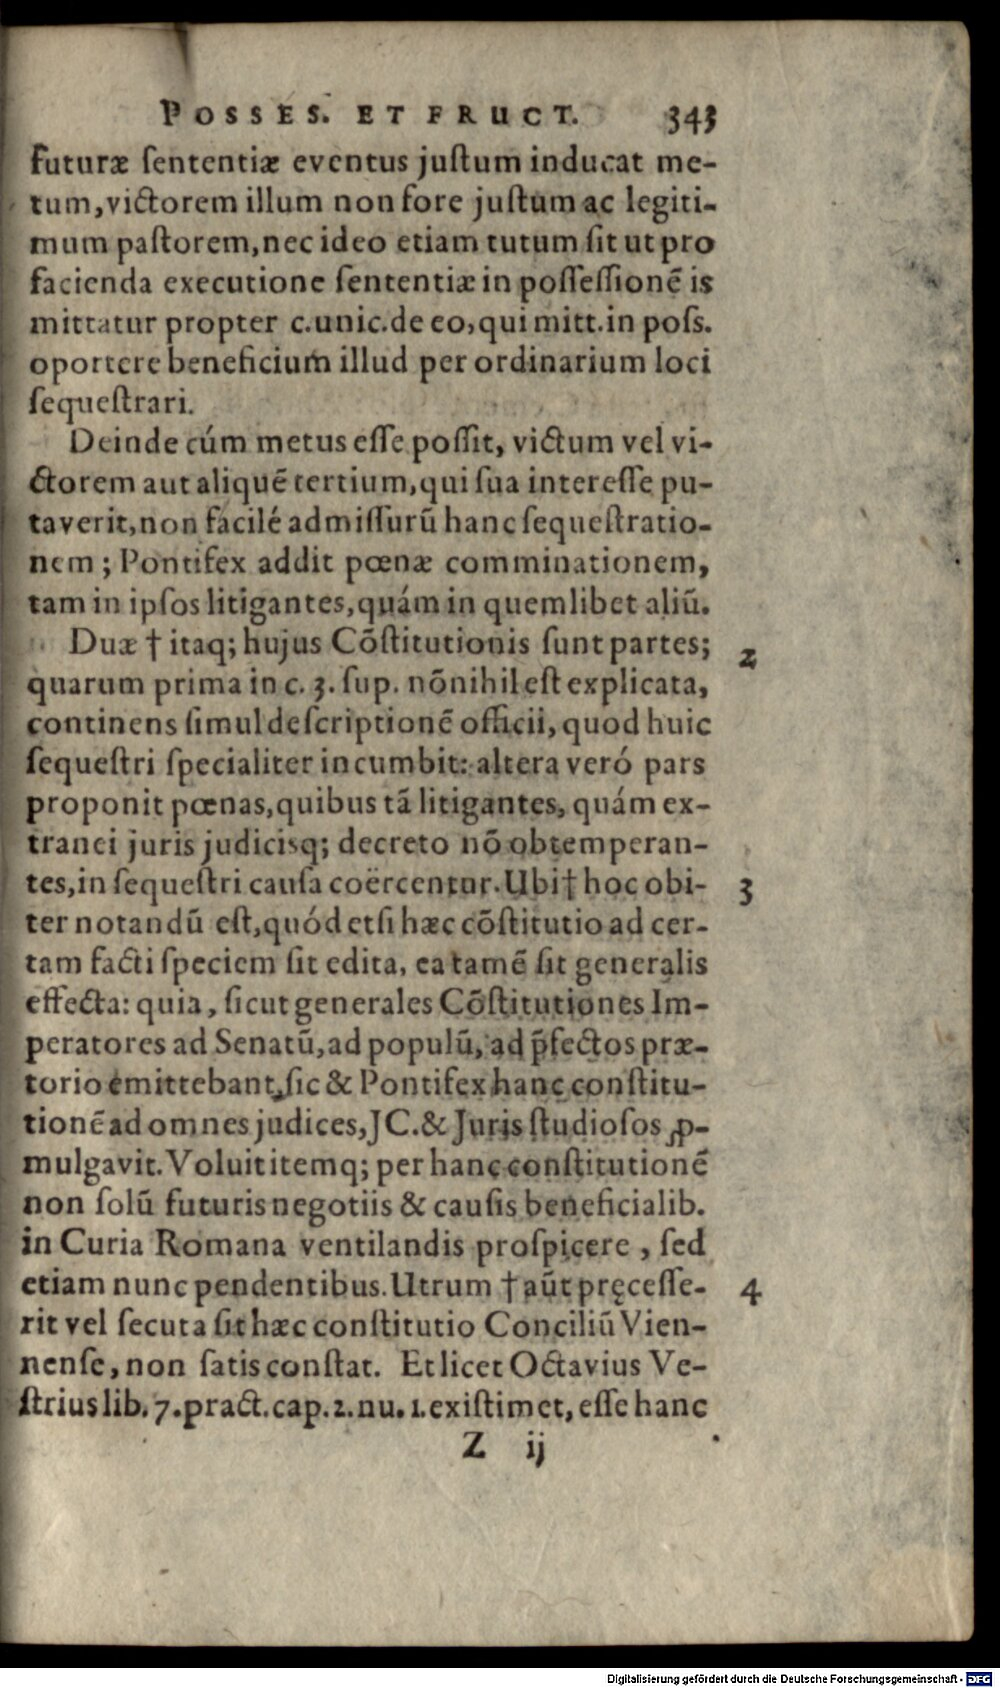 POSSES. ET FRUCT. 343
futuræ ſententiæ eventus juſtum inducat me-
tum, victorem illum non fore juſtum ac legiti-
mum paſtorem, nec ideo etiam tutum ſit ut pro
facienda executione ſententiæ in poſſeſſionē is
mittatur propter c. unic. de eo, qui mitt. in poſs.
oportere beneficium illud per ordinarium loci
ſequeſtrari.
Deinde cúm metus eſſe poſſit, victum vel vi-
ctorem aut aliquē tertium, qui ſua intereſſe pu-
taverit, non facilé admiſſurū hanc ſequeſtratio-
nem; Pontifex addit pœnæ comminationem,
tam in ipſos litigantes, quám in quemlibet aliū.
Duæ † itaq; hujus Cōſtitutionis ſunt partes; 2
quarum prima in c. 3. ſup. nōnihil eſt explicata,
continens ſimul deſcriptionē officii, quod huic
ſequeſtri ſpecialiter incumbit: altera veró pars
proponit pœnas, quibus tā litigantes, quám ex-
tranei juris judicisq; decreto nō obtemperan-
tes, in ſequeſtri cauſa coërcentur. Ubi † hoc obi- 3
ter notandū eſt, quód etſi hæc cōſtitutio ad cer-
tam facti ſpeciem ſit edita, ea tamē ſit generalis
effecta: quia, ſicut generales Cōſtitutiones Im-
peratores ad Senatū, ad populū, ad p̄fectos præ-
torio emittebant, ſic & Pontifex hanc conſtitu-
tionē ad omnes judices, JC. & Juris ſtudioſos ꝓ-
mulgavit. Voluit itemq; per hanc conſtitutionē
non ſolū futuris negotiis & cauſis beneficialib.
in Curia Romana ventilandis proſpicere, ſed
etiam nunc pendentibus. Utrum † aūt pręceſſe- 4
rit vel ſecuta ſit hæc conſtitutio Conciliū Vien-
nenſe, non ſatis conſtat. Et licet Octavius Ve-
ſtrius lib. 7. pract. cap. 2. nu. 1. exiſtimet, eſſe hanc
Z ij
Digitalisierung gefördert durch die Deutsche Forschungsgemeinschaft - DFG